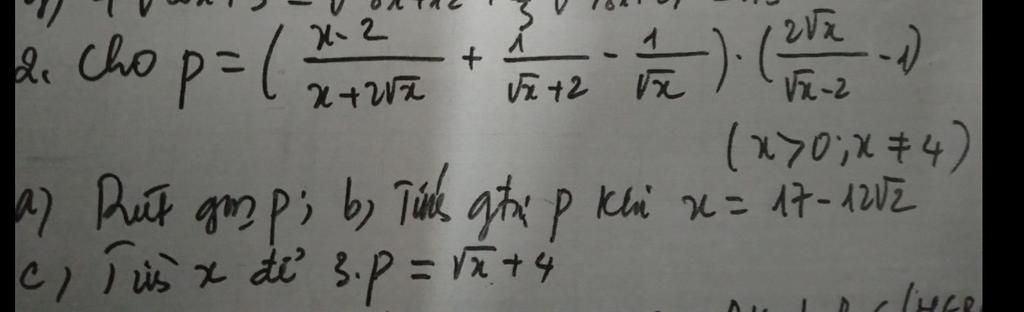 2. Cho p = ( x-2 / x+2√x + 1 / √x+2 - 1 / √x ) . ( 2√x / √x-2 - 1 )
(x>0; x ≠ 4)
a) Rút gọn p; b) Tính gtrị p khi x = 17-12√2
c) Tìm x để 3.p = √x + 4